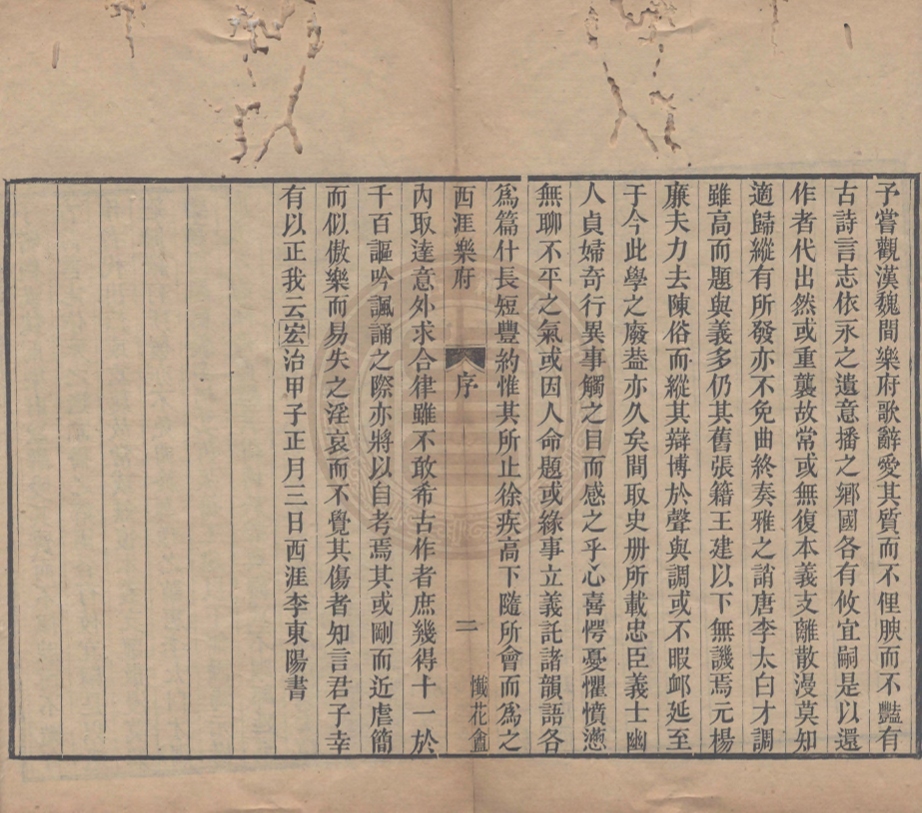 予嘗觀漢魏間樂府歌辭愛其質而不俚腴而不豔有
古詩言志依永之遺意播之鄉國各有攸宜嗣是以還
作者代出然或重襲故常或無復本義支離散漫莫知
適歸縱有所發亦不免曲終奏雅之誚唐李太白才調
雖高而題與義多仍其舊張籍王建以下無譏焉元楊
廉夫力去陳俗而縱其辯博於聲與調或不暇卹延至
于今此學之廢葢亦久矣間取史册所載忠臣義士幽
人貞婦奇行異事觸之目而感之乎心喜愕憂懼憤懣
無聊不平之氣或因人命題或緣事立義託諸韻語各
爲篇什長短豐約惟其所止徐疾高下隨所會而爲之
西涯樂府 序 二 懺花盦
內取達意外求合律雖不敢希古作者庶幾得十一於
千百謳吟諷誦之際亦將以自考焉其或剛而近虐簡
而似傲樂而易失之淫哀而不覺其傷者知言君子幸
有以正我云宏治甲子正月三日西涯李東陽書